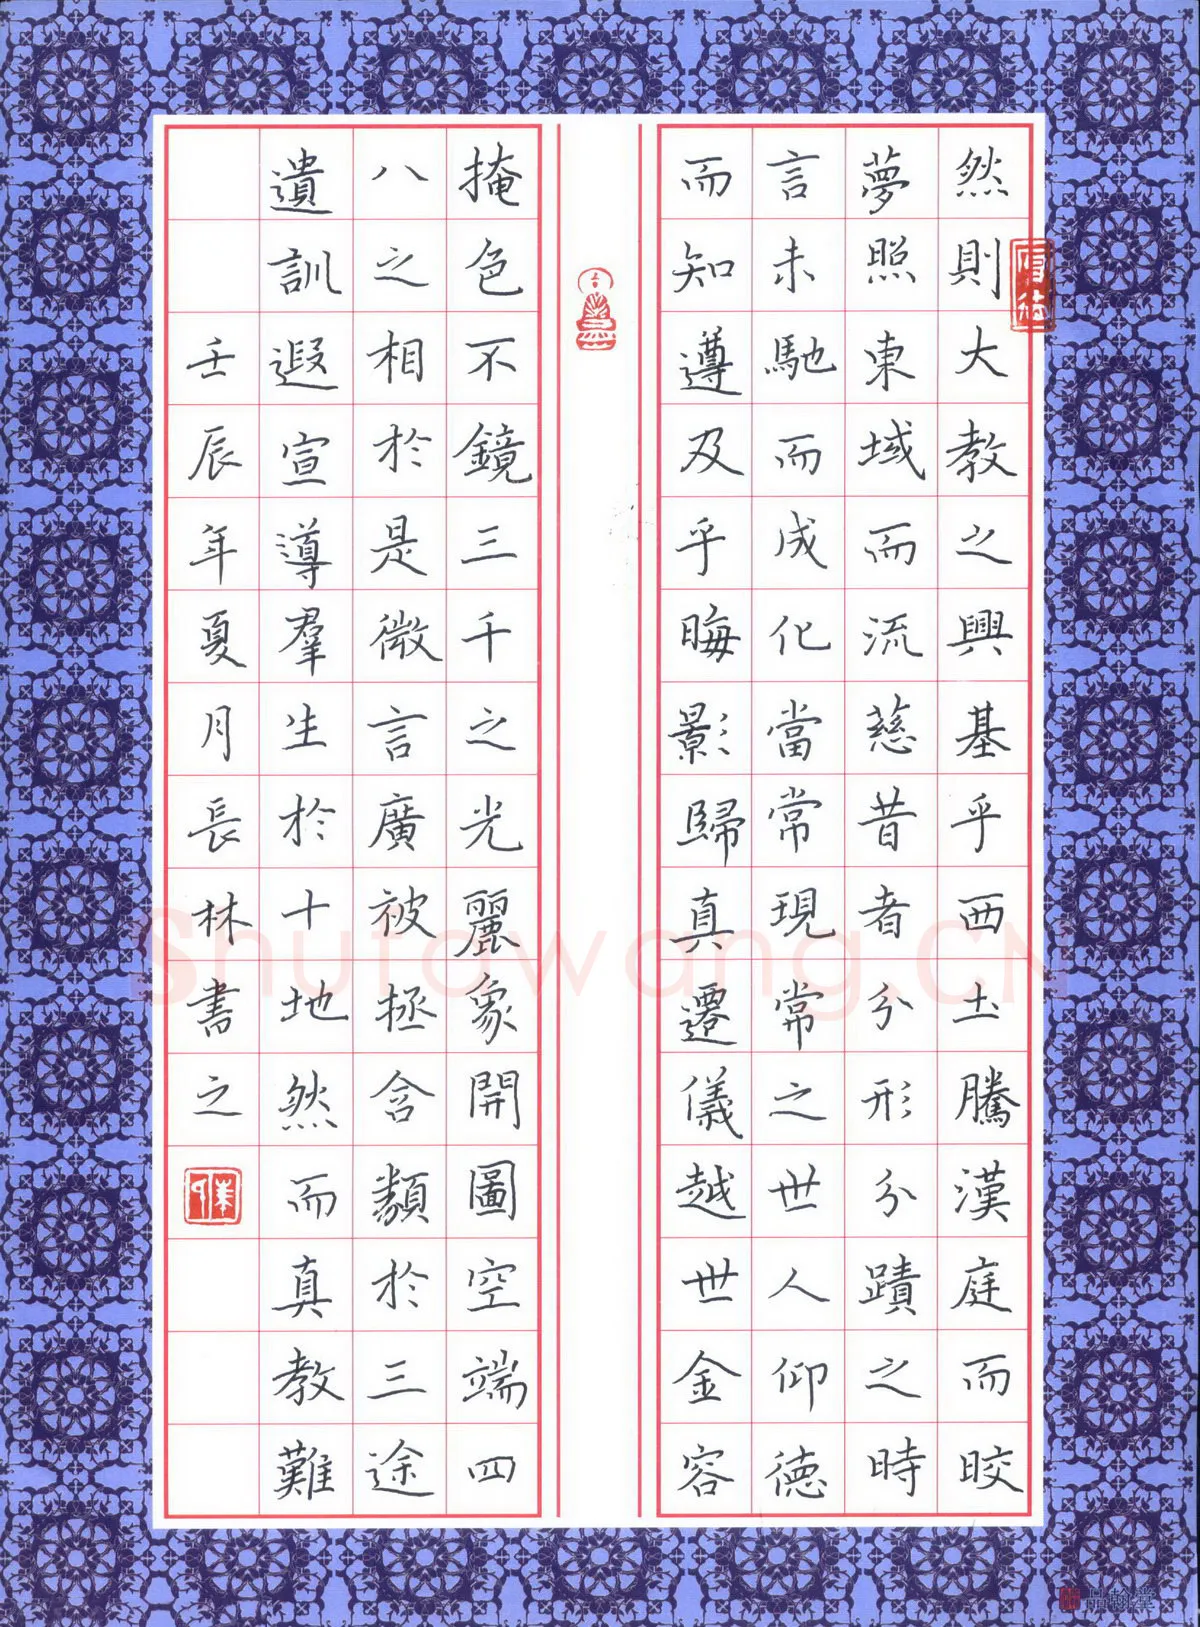 然則大教之興基乎西土騰漢庭而皎
夢照東域而流慈昔者分形分蹟之時
言未馳而成化當常現常之世人仰德
而知遵及乎晦影歸真遷儀越世金容
掩色不鏡三千之光麗象開圖空端四
八之相於是微言廣被拯含類於三途
遺訓遐宣導羣生於十地然而真教難
壬辰年夏月長林書之
shufawang.CN
品翰堂